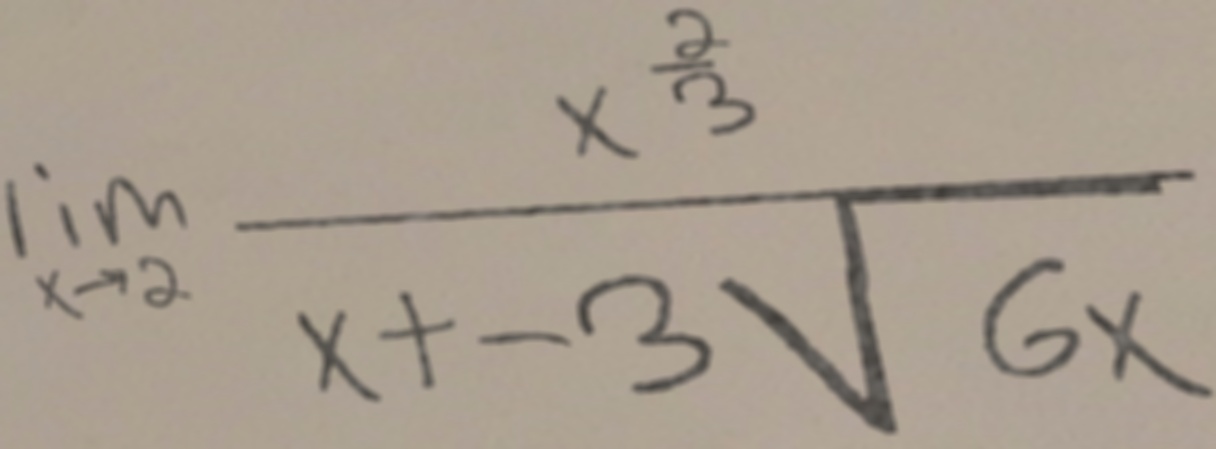 lim x→2 x^{2/3} / (x + -3√(6x))